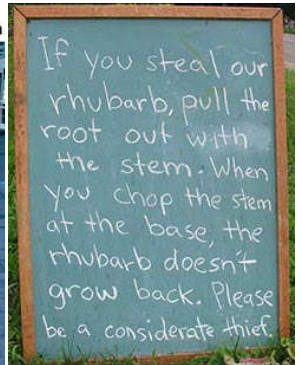 If you steal our
rhubarb, pull the
root out with
the stem. When
you chop the stem
at the base, the
rhubarb doesn't
grow back. Please
be a considerate thief.